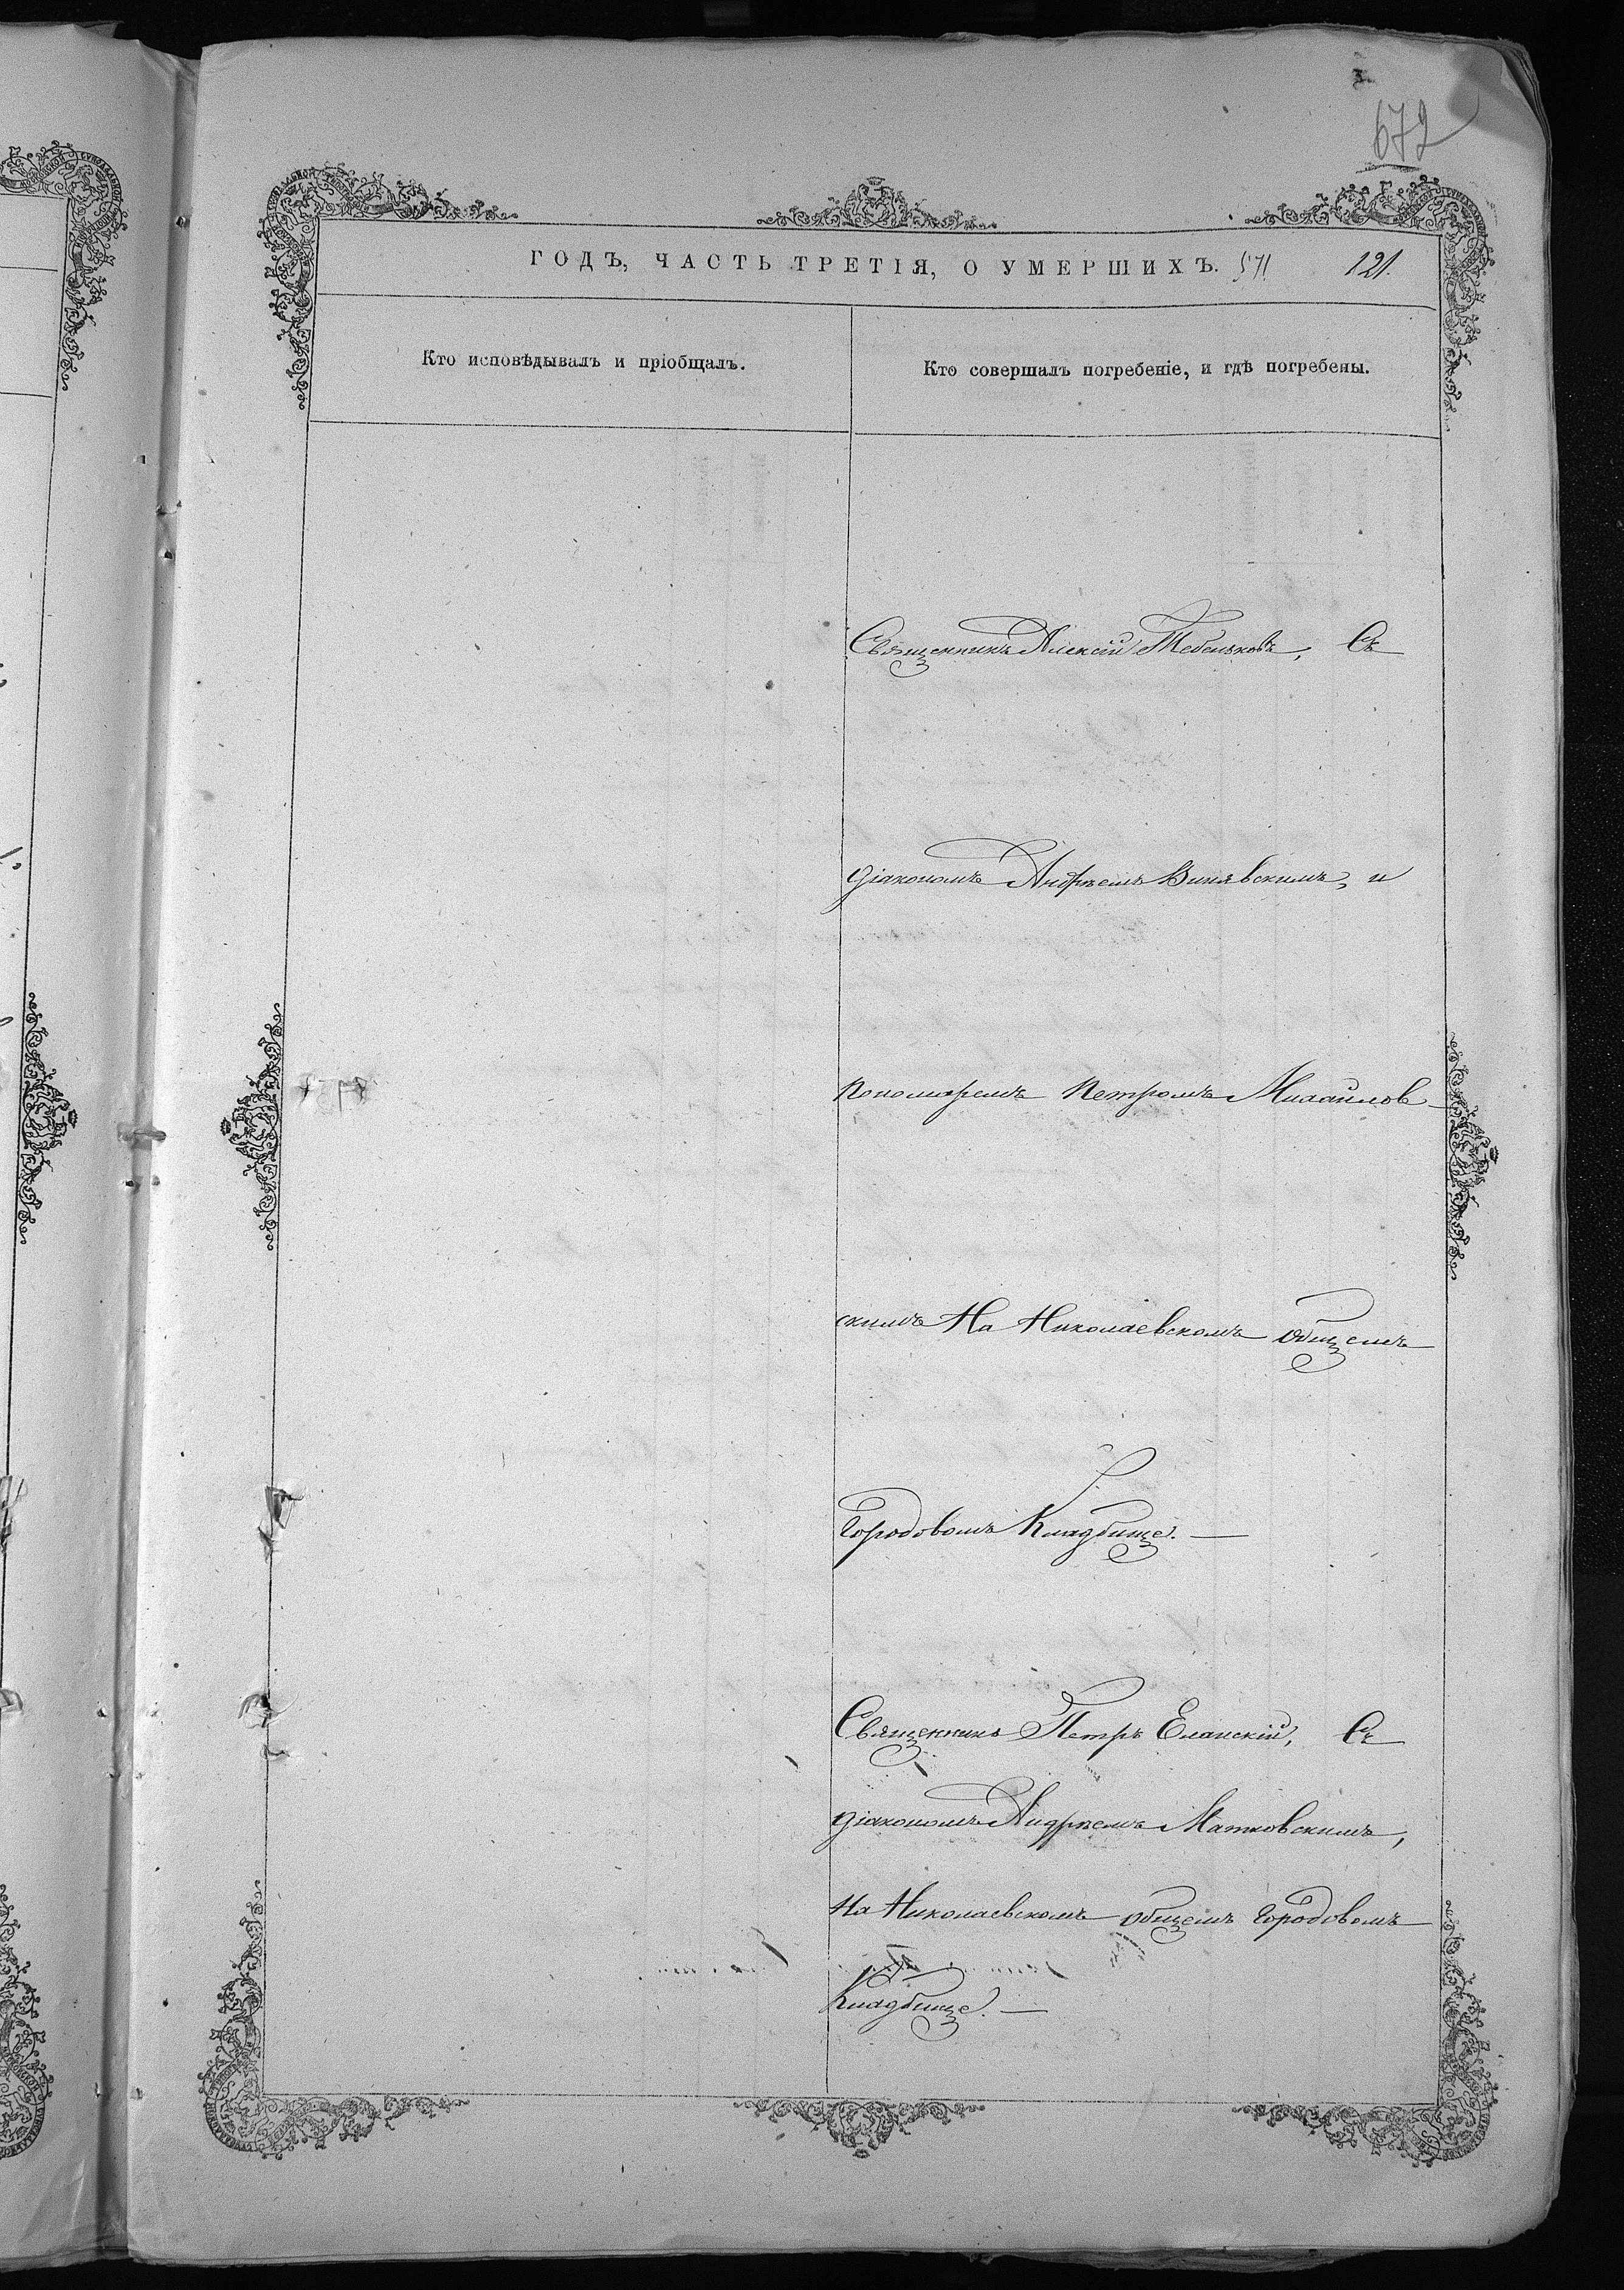 672
ГОДЪ, ЧАСТЬ ТРЕТІЯ, О УМЕРШИХЪ. 571 121.
Кто исповѣдывалъ и пріобщалъ.
Кто совершалъ погребеніе, и гдѣ погребены.
Священникъ Алексій Тебеньковъ, Съ
діакономъ Андреемъ Винявскимъ, и
Пономаремъ Петромъ Михайлов
скимъ На Николаевскомъ общемъ
Городовомъ Кладбище. —
Священникъ Петръ Еланскій, Съ
діакономъ Андреемъ Матковскимъ,
На Николаевскомъ общемъ Городовомъ
Кладбище. —